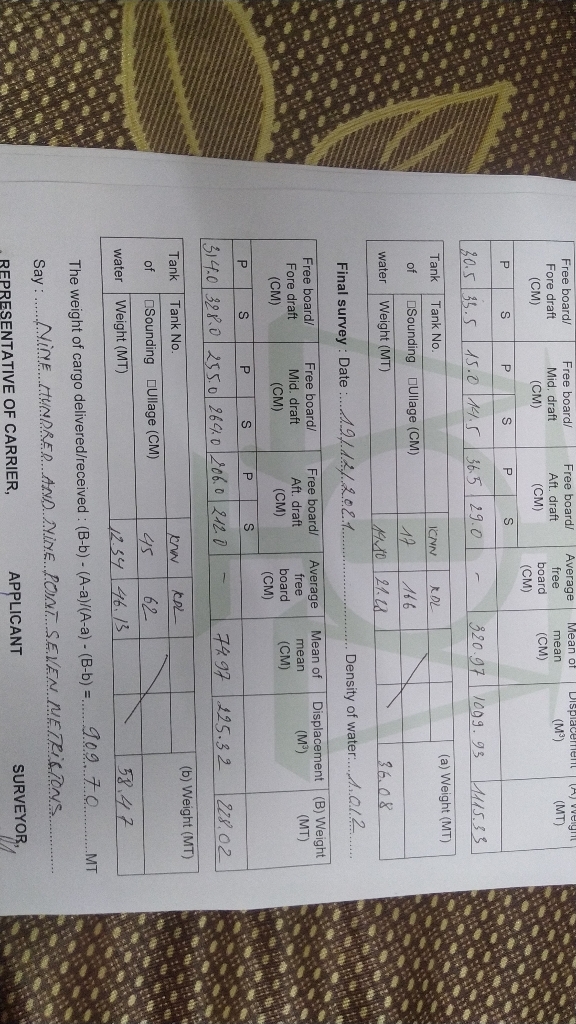 Free board/ Fore draft (CM) Free board/ Mid. draft (CM) Free board/ Aft. draft (CM) Average free board (CM) Mean of mean (CM) Displacement (M³) (A) Weight (MT)
P S P S P S
30.5 33.5 15.0 14.5 36.5 29.0 - 320.97 1099.93
Tank Tank No. KNN KDL (a) Weight (MT)
of □Sounding □Ullage (CM) 17 166
water Weight (MT) 36.08
Final survey : Date : 19/12/2021 Density of water 1.012
Free board/ Fore draft (CM) Free board/ Mid. draft (CM) Free board/ Aft. draft (CM) Average free board (CM) Mean of mean (CM) Displacement (M³) (B) Weight (MT)
P S P S P S
314.0 328.0 255.0 264.0 206.0 212.0 - 74.97 225.32 228.02
Tank Tank No. KNN KDL (b) Weight (MT)
of □Sounding □Ullage (CM) 45 62
water Weight (MT) 12.34 46.13 58.47
The weight of cargo delivered/received : (B-b) - (A-a)/(A-a) - (B-b) = 909.70 MT
Say : NINE HUNDRED AND NINE POINT SEVEN METRICTONS
REPRESENTATIVE OF CARRIER, APPLICANT SURVEYOR,